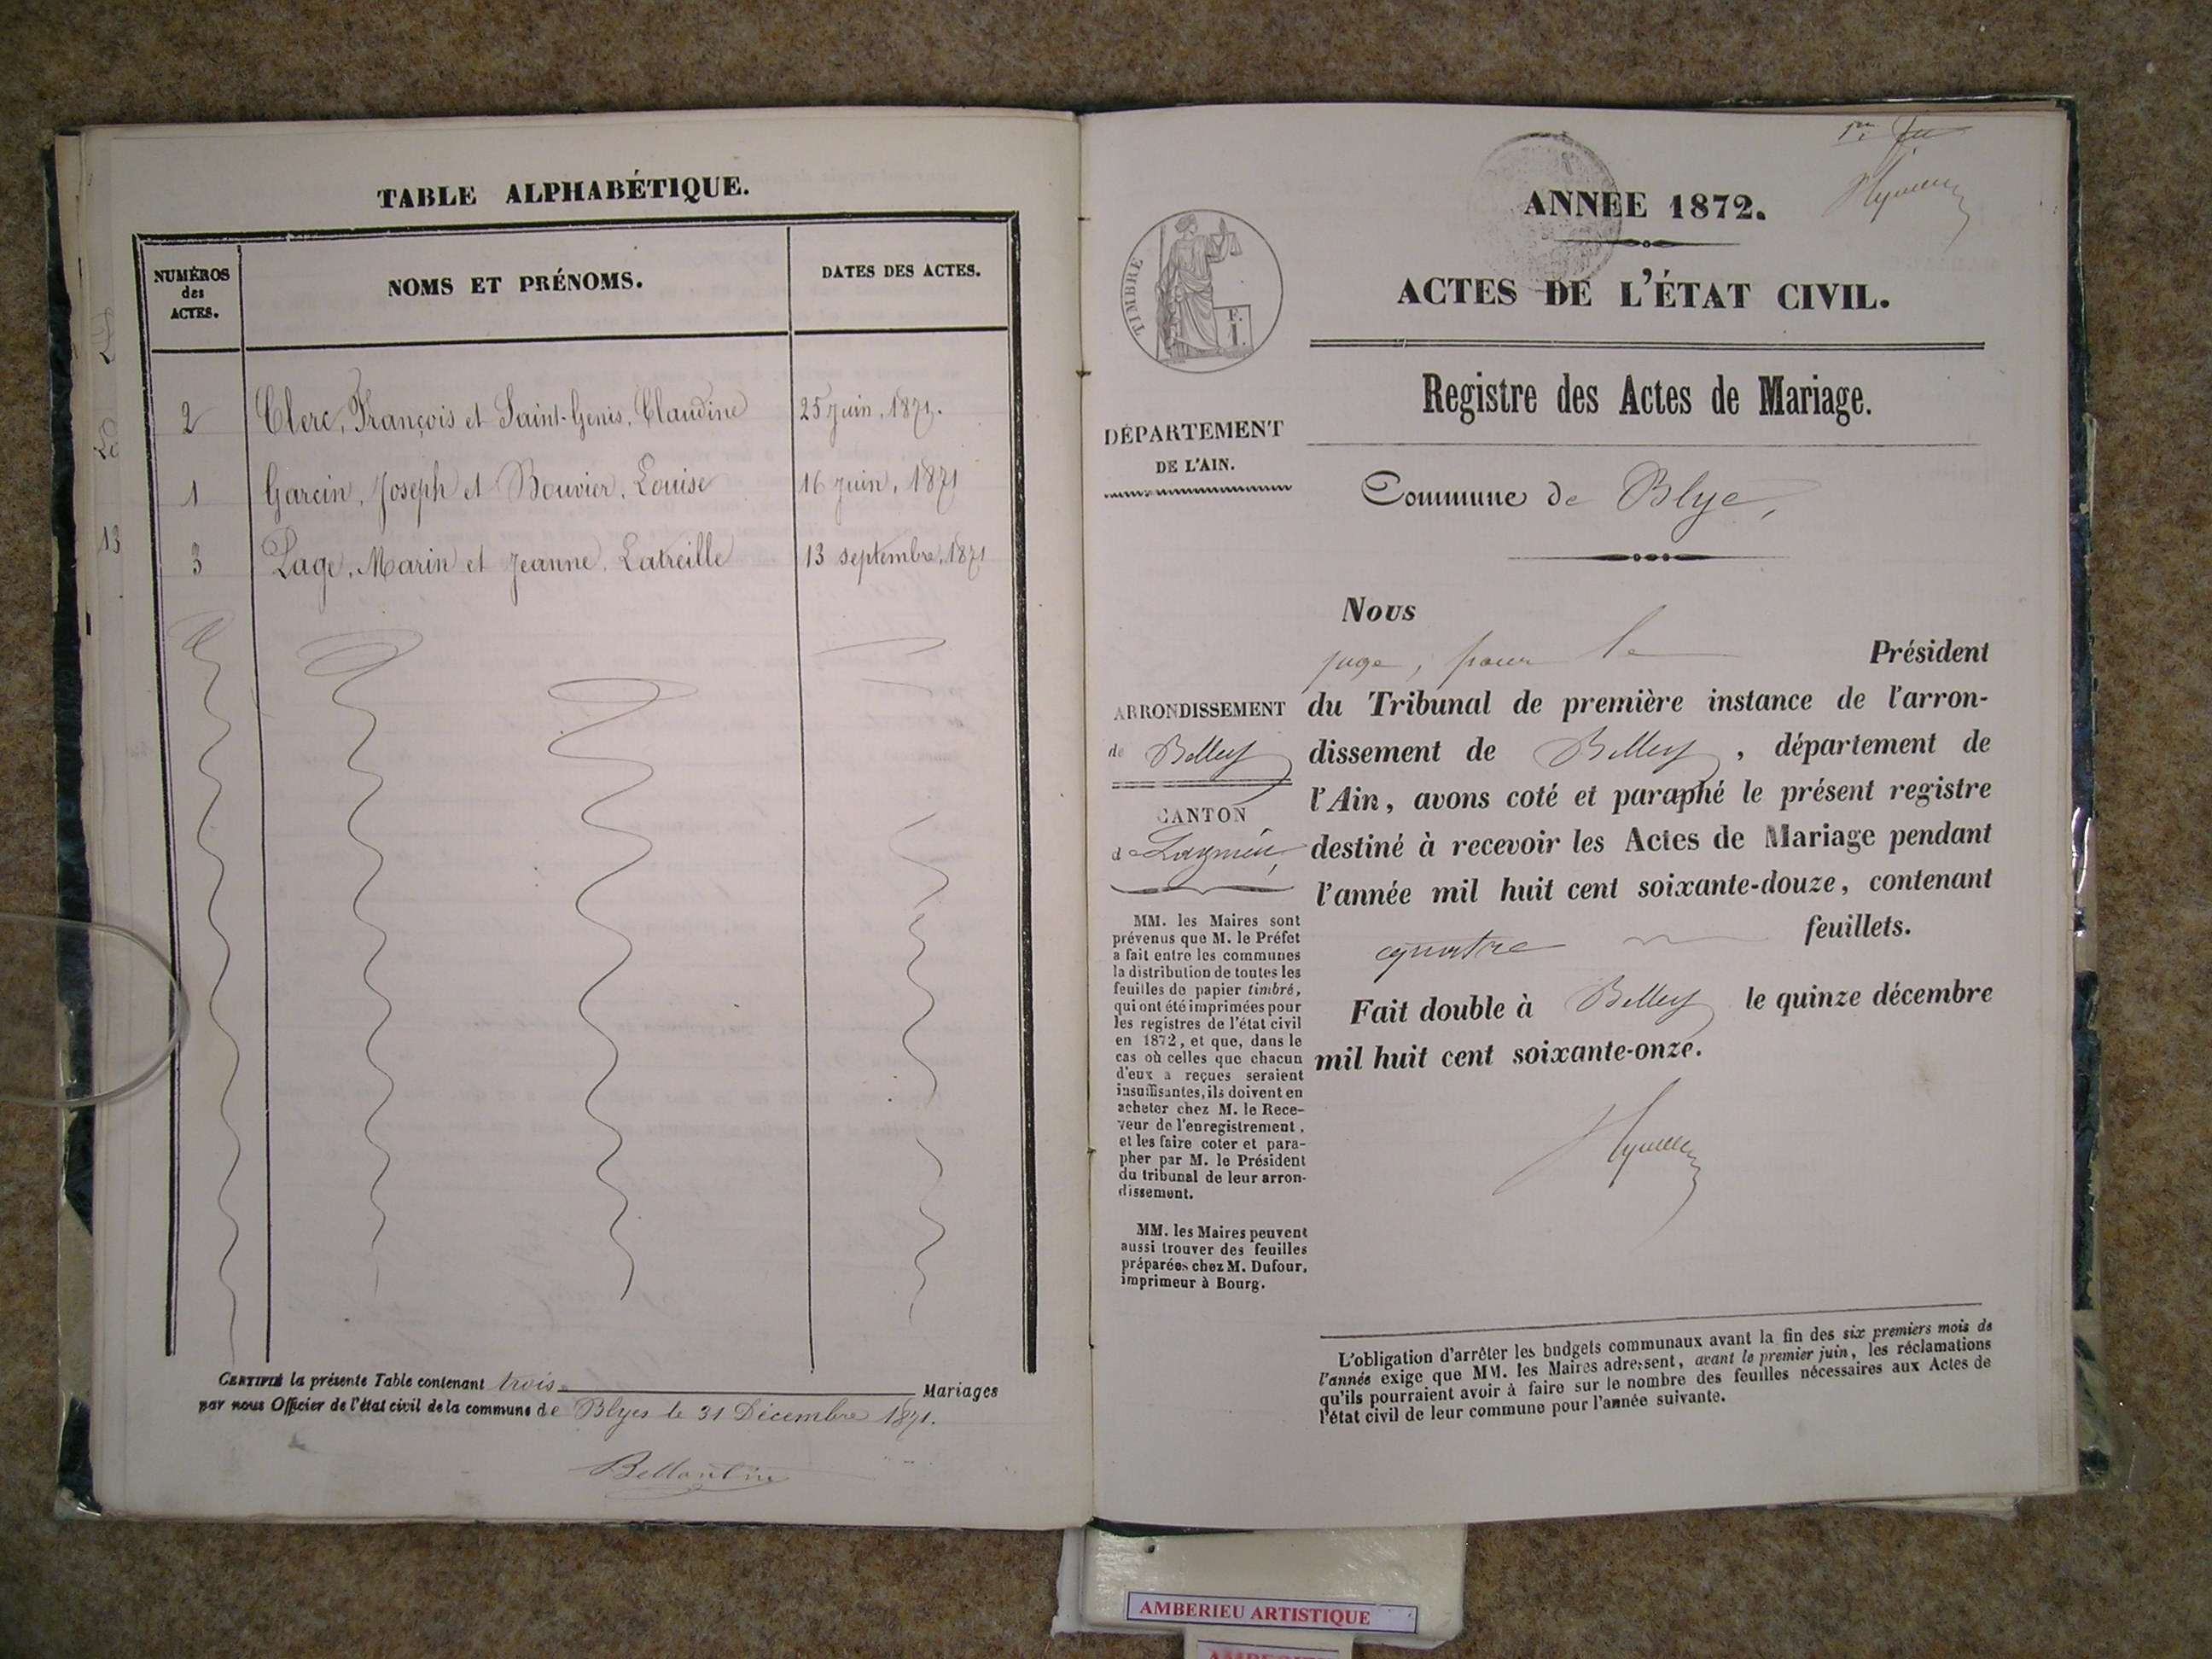 TABLE ALPHABÉTIQUE.
NUMÉROS
des
ACTES.
NOMS ET PRÉNOMS.
DATES DES ACTES.
2 Clerc, François et Saint-Genis, Claudine 25 juin, 1871.
1 Garcin, Joseph et Bouvier, Louise 16 juin, 1871
13
3 Page, Marin et Jeanne, Latreille 13 septembre, 1871
CERTIFIÉ la présente Table contenant trois Mariages
par nous Officier de l'état civil de la commune de Blyes le 31 Décembre 1871.
ANNEE 1872.
ACTES DE L'ÉTAT CIVIL.
TIMBRE
F.
1.
Registre des Actes de Mariage.
DÉPARTEMENT
DE L'AIN.
Commune de Blye,
Nous
juge, pour le Président
du Tribunal de première instance de l'arron-
dissement de Belley, département de
l'Ain, avons coté et paraphé le présent registre
destiné à recevoir les Actes de Mariage pendant
l'année mil huit cent soixante-douze, contenant
quatre feuillets.
Fait double à Belley le quinze décembre
mil huit cent soixante-onze.
ARRONDISSEMENT
de Belley
CANTON
de Lagnieu,
MM. les Maires sont
prévenus que M. le Préfet
a fait entre les communes
la distribution de toutes les
feuilles de papier timbré,
qui ont été imprimées pour
les registres de l'état civil
en 1872, et que, dans le
cas où celles que chacun
d'eux a reçues seraient
insuffisantes, ils doivent en
acheter chez M. le Rece-
veur de l'enregistrement,
et les faire coter et para-
pher par M. le Président
du tribunal de leur arron-
dissement.
MM. les Maires peuvent
aussi trouver des feuilles
préparées chez M. Dufour,
imprimeur à Bourg.
L'obligation d'arrêter les budgets communaux avant la fin des six premiers mois de
l'année exige que MM. les Maires adressent, avant le premier juin, les réclamations
qu'ils pourraient avoir à faire sur le nombre des feuilles nécessaires aux Actes de
l'état civil de leur commune pour l'année suivante.
AMBERIEU ARTISTIQUE